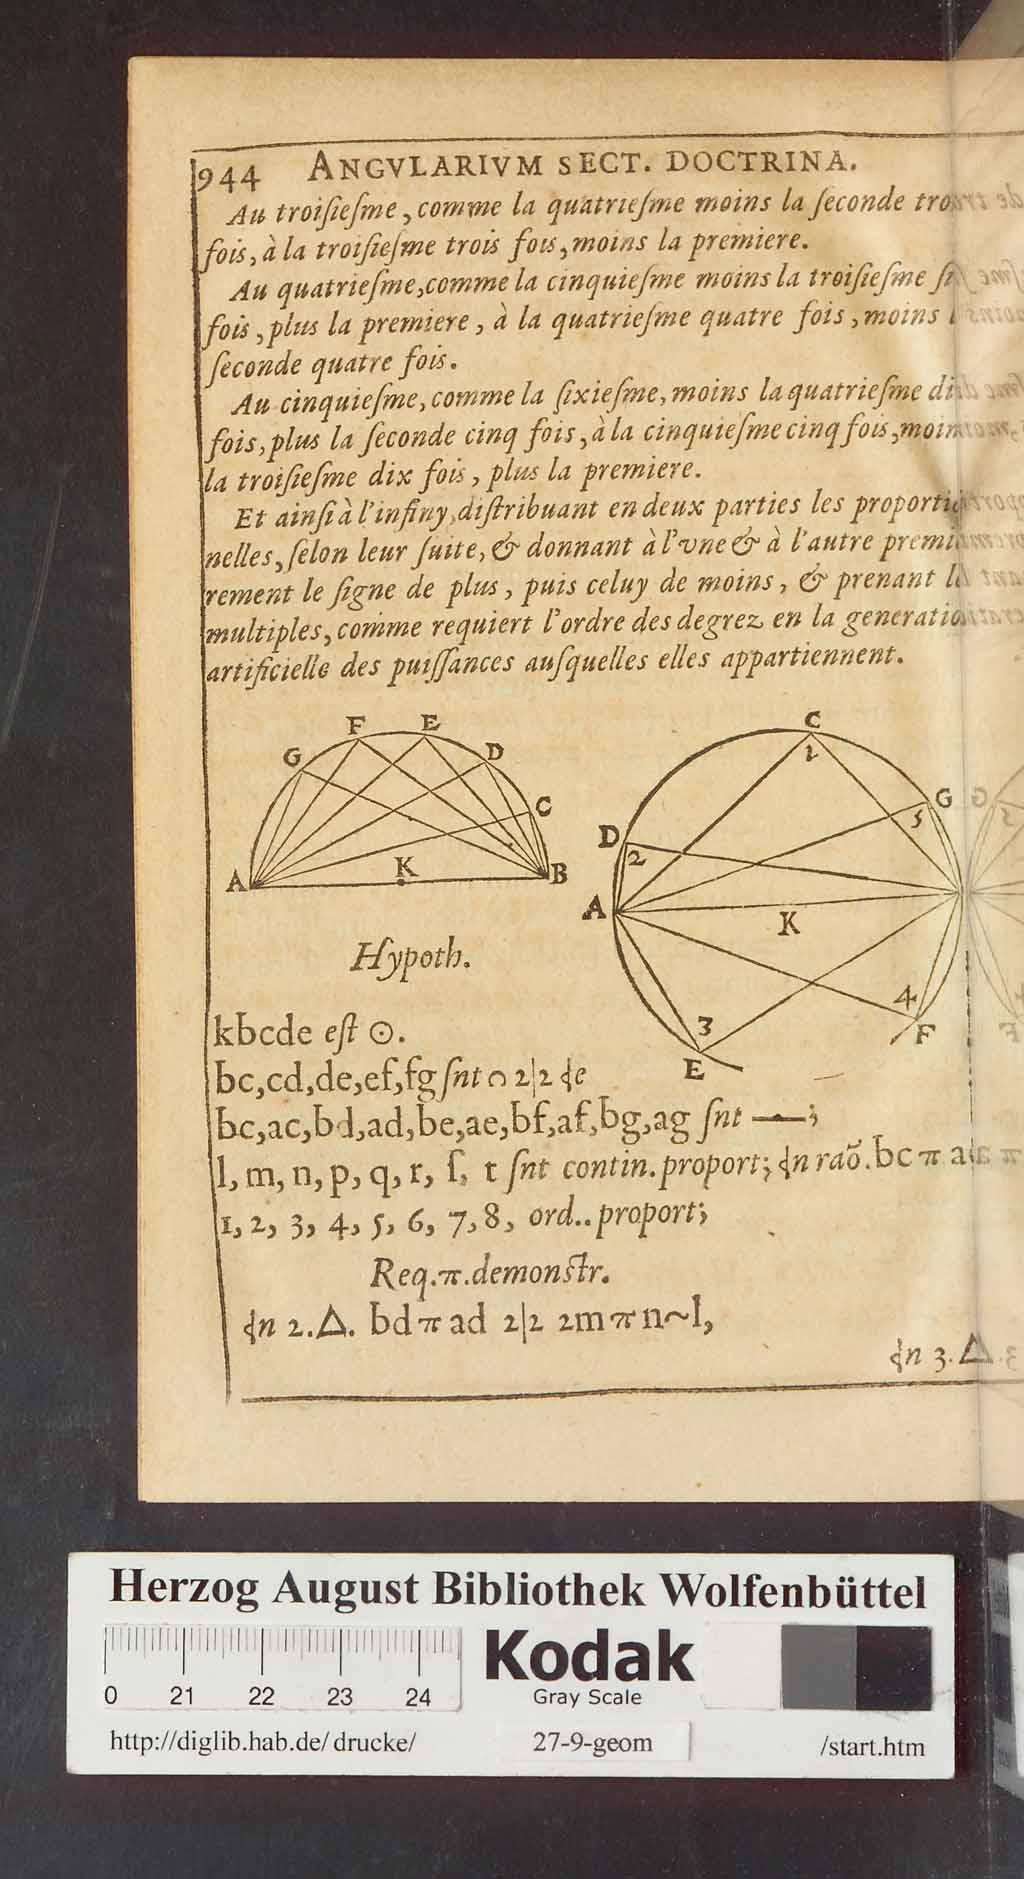 944 ANGVLARIVM SECT. DOCTRINA.
Au troiſieſme, comme la quatrieſme moins la ſeconde
fois, à la troiſieſme trois fois, moins la premiere.
Au quatrieſme, comme la cinquieſme moins la troiſieſme
fois, plus la premiere, à la quatrieſme quatre fois, moins
ſeconde quatre fois.
Au cinquieſme, comme la ſixieſme, moins la quatrieſme
fois, plus la ſeconde cinq fois, à la cinquieſme cinq fois,
la troiſieſme dix fois, plus la premiere.
Et ainſi à l'infiny, diſtribuant en deux parties les
nelles, ſelon leur ſuite, & donnant à l'vne & à l'autre
rement le ſigne de plus, puis celuy de moins, & prenant
multiples, comme requiert l'ordre des degrez en la
artificielle des puiſſances auſquelles elles appartiennent.
F E
G D
C
A K B
C
1
G
D 5
2
A
K
4
3 F
E
Hypoth.
kbcde eſt ⊙.
bc,cd,de,ef,fg ſnt ∩ 2|2 ꝺe
bc,ac,bd,ad,be,ae,bf,af,bg,ag ſnt —;
l, m, n, p, q, r, ſ, t ſnt contin. proport; ꝺn raõ. bc π
1, 2, 3, 4, 5, 6, 7, 8, ord.. proport;
Req. π. demonſtr.
ꝺn 2. Δ. bd π ad 2|2 2m π n~l,
ꝺn 3. Δ
Herzog August Bibliothek Wolfenbüttel
0 21 22 23 24
Kodak
Gray Scale
http://diglib.hab.de/drucke/ 27-9-geom /start.htm